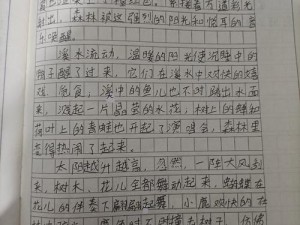 射出来
森林被这强烈的阳光和惊耳的音
乐唤醒
溪水流动，温暖的阳光使河畔中的
鸭子醒了过来，它们在溪水中欢快的嬉
戏、觅食，溪中的鱼儿也不时跳出水面
来，溅起一片晶莹的水花，树上的蝉和
荷叶上的青蛙也开起了演唱会，森林里
变得热闹了起来。
太阳越升越高，忽然，一阵大风刮
来，树木，花儿全部舞动起来，蝴蝶在
花儿的伴奏下翩翩起舞，小鹿欢快的在
时不时撞为树子，仿佛